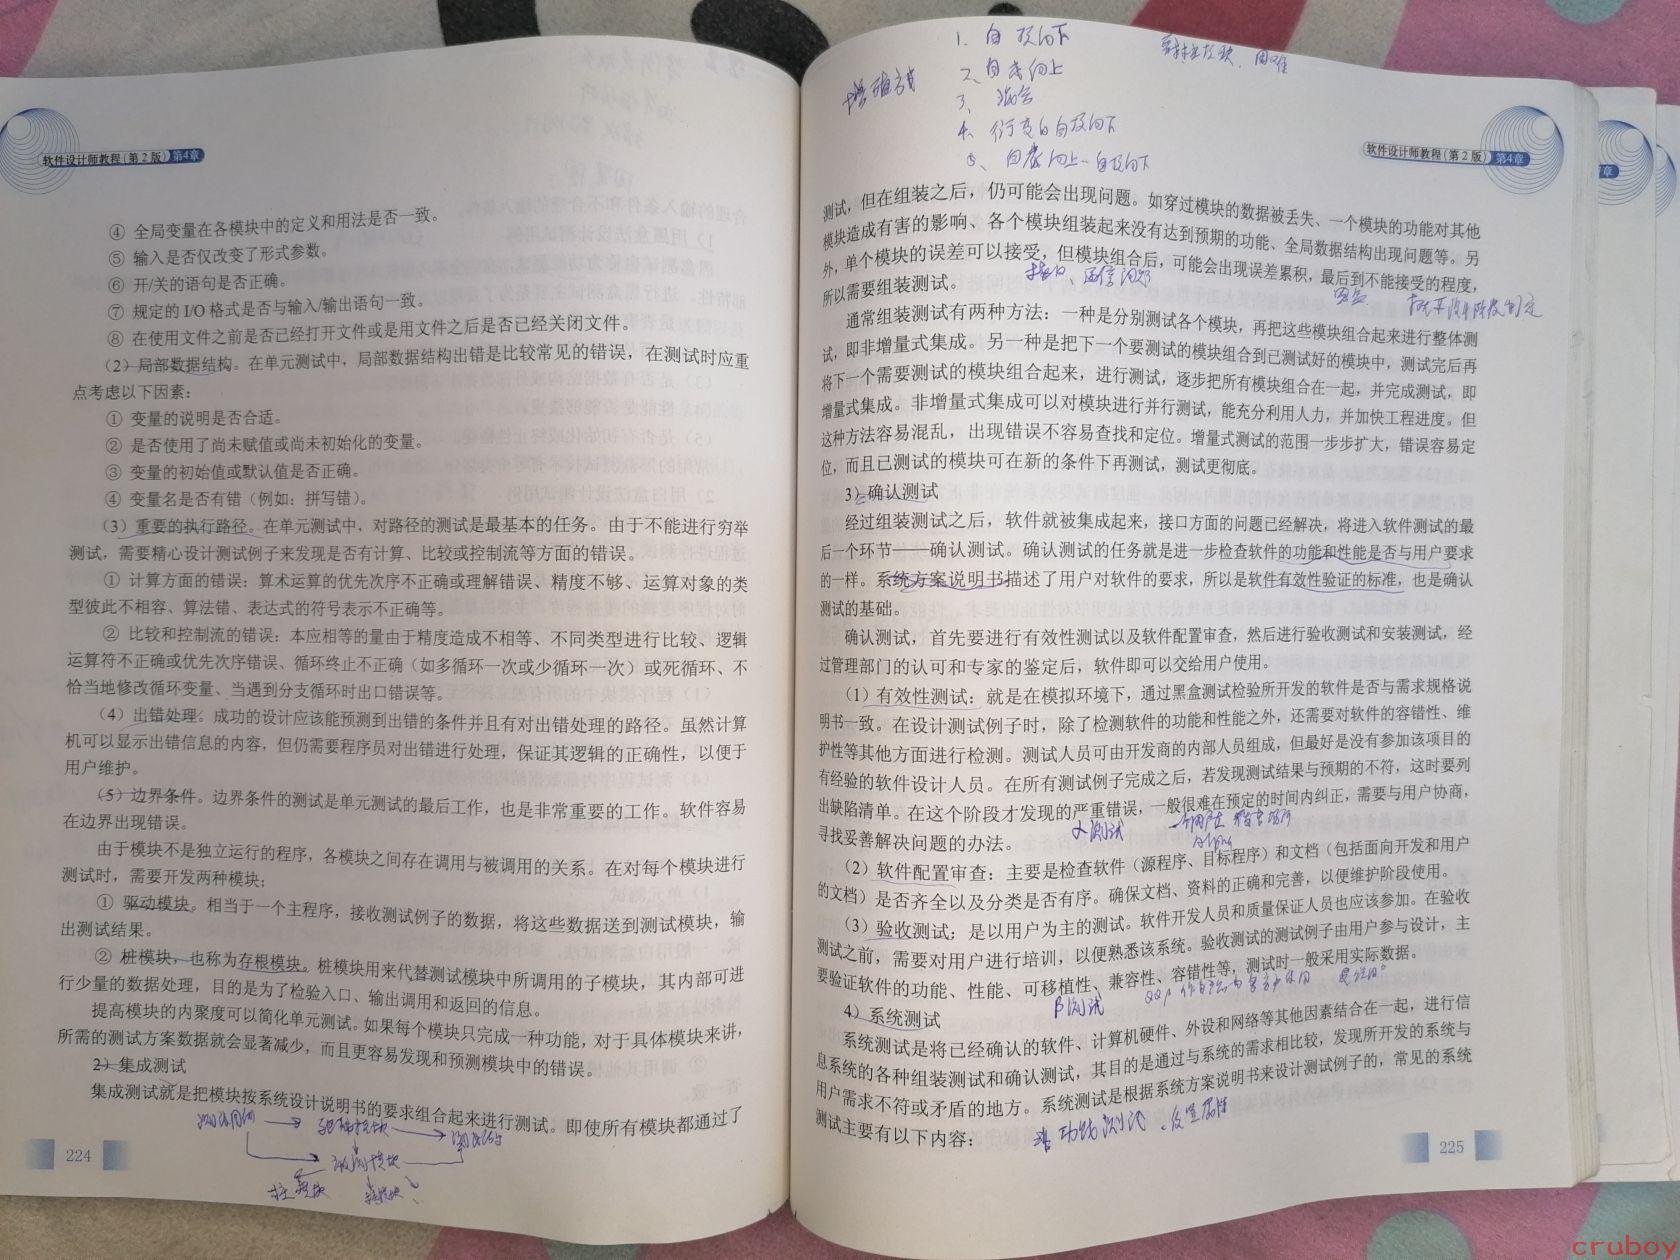 软件设计师教程（第2版） 第4章
④ 全局变量在各模块中的定义和用法是否一致。
⑤ 输入是否仅改变了形式参数。
⑥ 开/关的语句是否正确。
⑦ 规定的 I/O 格式是否与输入/输出语句一致。
⑧ 在使用文件之前是否已经打开文件或是用文件之后是否已经关闭文件。
（2）局部数据结构。在单元测试中，局部数据结构出错是比较常见的错误，在测试时应重
点考虑以下因素：
① 变量的说明是否合适。
② 是否使用了尚未赋值或尚未初始化的变量。
③ 变量的初始值或默认值是否正确。
④ 变量名是否有错（例如：拼写错）。
（3）重要的执行路径。在单元测试中，对路径的测试是最基本的任务。由于不能进行穷举
测试，需要精心设计测试例子来发现是否有计算、比较或控制流等方面的错误。
① 计算方面的错误：算术运算的优先次序不正确或理解错误、精度不够、运算对象的类
型彼此不相容、算法错、表达式的符号表示不正确等。
② 比较和控制流的错误：本应相等的量由于精度造成不相等、不同类型进行比较、逻辑
运算符不正确或优先次序错误、循环终止不正确（如多循环一次或少循环一次）或死循环、不
恰当地修改循环变量、当遇到分支循环时出口错误等。
（4）出错处理。成功的设计应该能预测到出错的条件并且有对出错处理的路径。虽然计算
机可以显示出错信息的内容，但仍需要程序员对出错进行处理，保证其逻辑的正确性，以便于
用户维护。
（5）边界条件。边界条件的测试是单元测试的最后工作，也是非常重要的工作。软件容易
在边界出现错误。
由于模块不是独立运行的程序，各模块之间存在调用与被调用的关系。在对每个模块进行
测试时，需要开发两种模块：
① 驱动模块。相当于一个主程序，接收测试例子的数据，将这些数据送到测试模块，输
出测试结果。
② 桩模块，也称为存根模块。桩模块用来代替测试模块中所调用的子模块，其内部可进
行少量的数据处理，目的是为了检验入口、输出调用和返回的信息。
提高模块的内聚度可以简化单元测试。如果每个模块只完成一种功能，对于具体模块来讲，
所需的测试方案数据就会显著减少，而且更容易发现和预测模块中的错误。
2）集成测试
集成测试就是把模块按系统设计说明书的要求组合起来进行测试。即使所有模块都通过了
测试用例
驱动模块
被测模块
桩模块
224
1. 自顶向下
2、自底向上
3、混合
4、衍变的自顶向下
5、自底向上-自顶向下
增殖方式
软件设计师教程（第2版） 第4章
测试，但在组装之后，仍可能会出现问题。如穿过模块的数据被丢失、一个模块的功能对其他
模块造成有害的影响、各个模块组装起来没有达到预期的功能、全局数据结构出现问题等。另
外，单个模块的误差可以接受，但模块组合后，可能会出现误差累积，最后到不能接受的程度，
所以需要组装测试。
接口、通信问题
通常组装测试有两种方法：一种是分别测试各个模块，再把这些模块组合起来进行整体测
试，即非增量式集成。另一种是把下一个要测试的模块组合到已测试好的模块中，测试完后再
将下一个需要测试的模块组合起来，进行测试，逐步把所有模块组合在一起，并完成测试，即
增量式集成。非增量式集成可以对模块进行并行测试，能充分利用人力，并加快工程进度。但
这种方法容易混乱，出现错误不容易查找和定位。增量式测试的范围一步步扩大，错误容易定
位，而且已测试的模块可在新的条件下再测试，测试更彻底。
3）确认测试
经过组装测试之后，软件就被集成起来，接口方面的问题已经解决，将进入软件测试的最
后一个环节——确认测试。确认测试的任务就是进一步检查软件的功能和性能是否与用户要求
的一样。系统方案说明书描述了用户对软件的要求，所以是软件有效性验证的标准，也是确认
测试的基础。
确认测试，首先要进行有效性测试以及软件配置审查，然后进行验收测试和安装测试，经
过管理部门的认可和专家的鉴定后，软件即可以交给用户使用。
（1）有效性测试：就是在模拟环境下，通过黑盒测试检验所开发的软件是否与需求规格说
明书一致。在设计测试例子时，除了检测软件的功能和性能之外，还需要对软件的容错性、维
护性等其他方面进行检测。测试人员可由开发商的内部人员组成，但最好是没有参加该项目的
有经验的软件设计人员。在所有测试例子完成之后，若发现测试结果与预期的不符，这时要列
出缺陷清单。在这个阶段才发现的严重错误，一般很难在预定的时间内纠正，需要与用户协商，
寻找妥善解决问题的办法。
α测试
（2）软件配置审查：主要是检查软件（源程序、目标程序）和文档（包括面向开发和用户
的文档）是否齐全以及分类是否有序。确保文档、资料的正确和完善，以便维护阶段使用。
（3）验收测试：是以用户为主的测试。软件开发人员和质量保证人员也应该参加。在验收
测试之前，需要对用户进行培训，以便熟悉该系统。验收测试的测试例子由用户参与设计，主
要验证软件的功能、性能、可移植性、兼容性、容错性等，测试时一般采用实际数据。
β测试
4）系统测试
系统测试是将已经确认的软件、计算机硬件、外设和网络等其他因素结合在一起，进行信
息系统的各种组装测试和确认测试，其目的是通过与系统的需求相比较，发现所开发的系统与
用户需求不符或矛盾的地方。系统测试是根据系统方案说明书来设计测试例子的，常见的系统
测试主要有以下内容：
非功能测试
225
cruboy